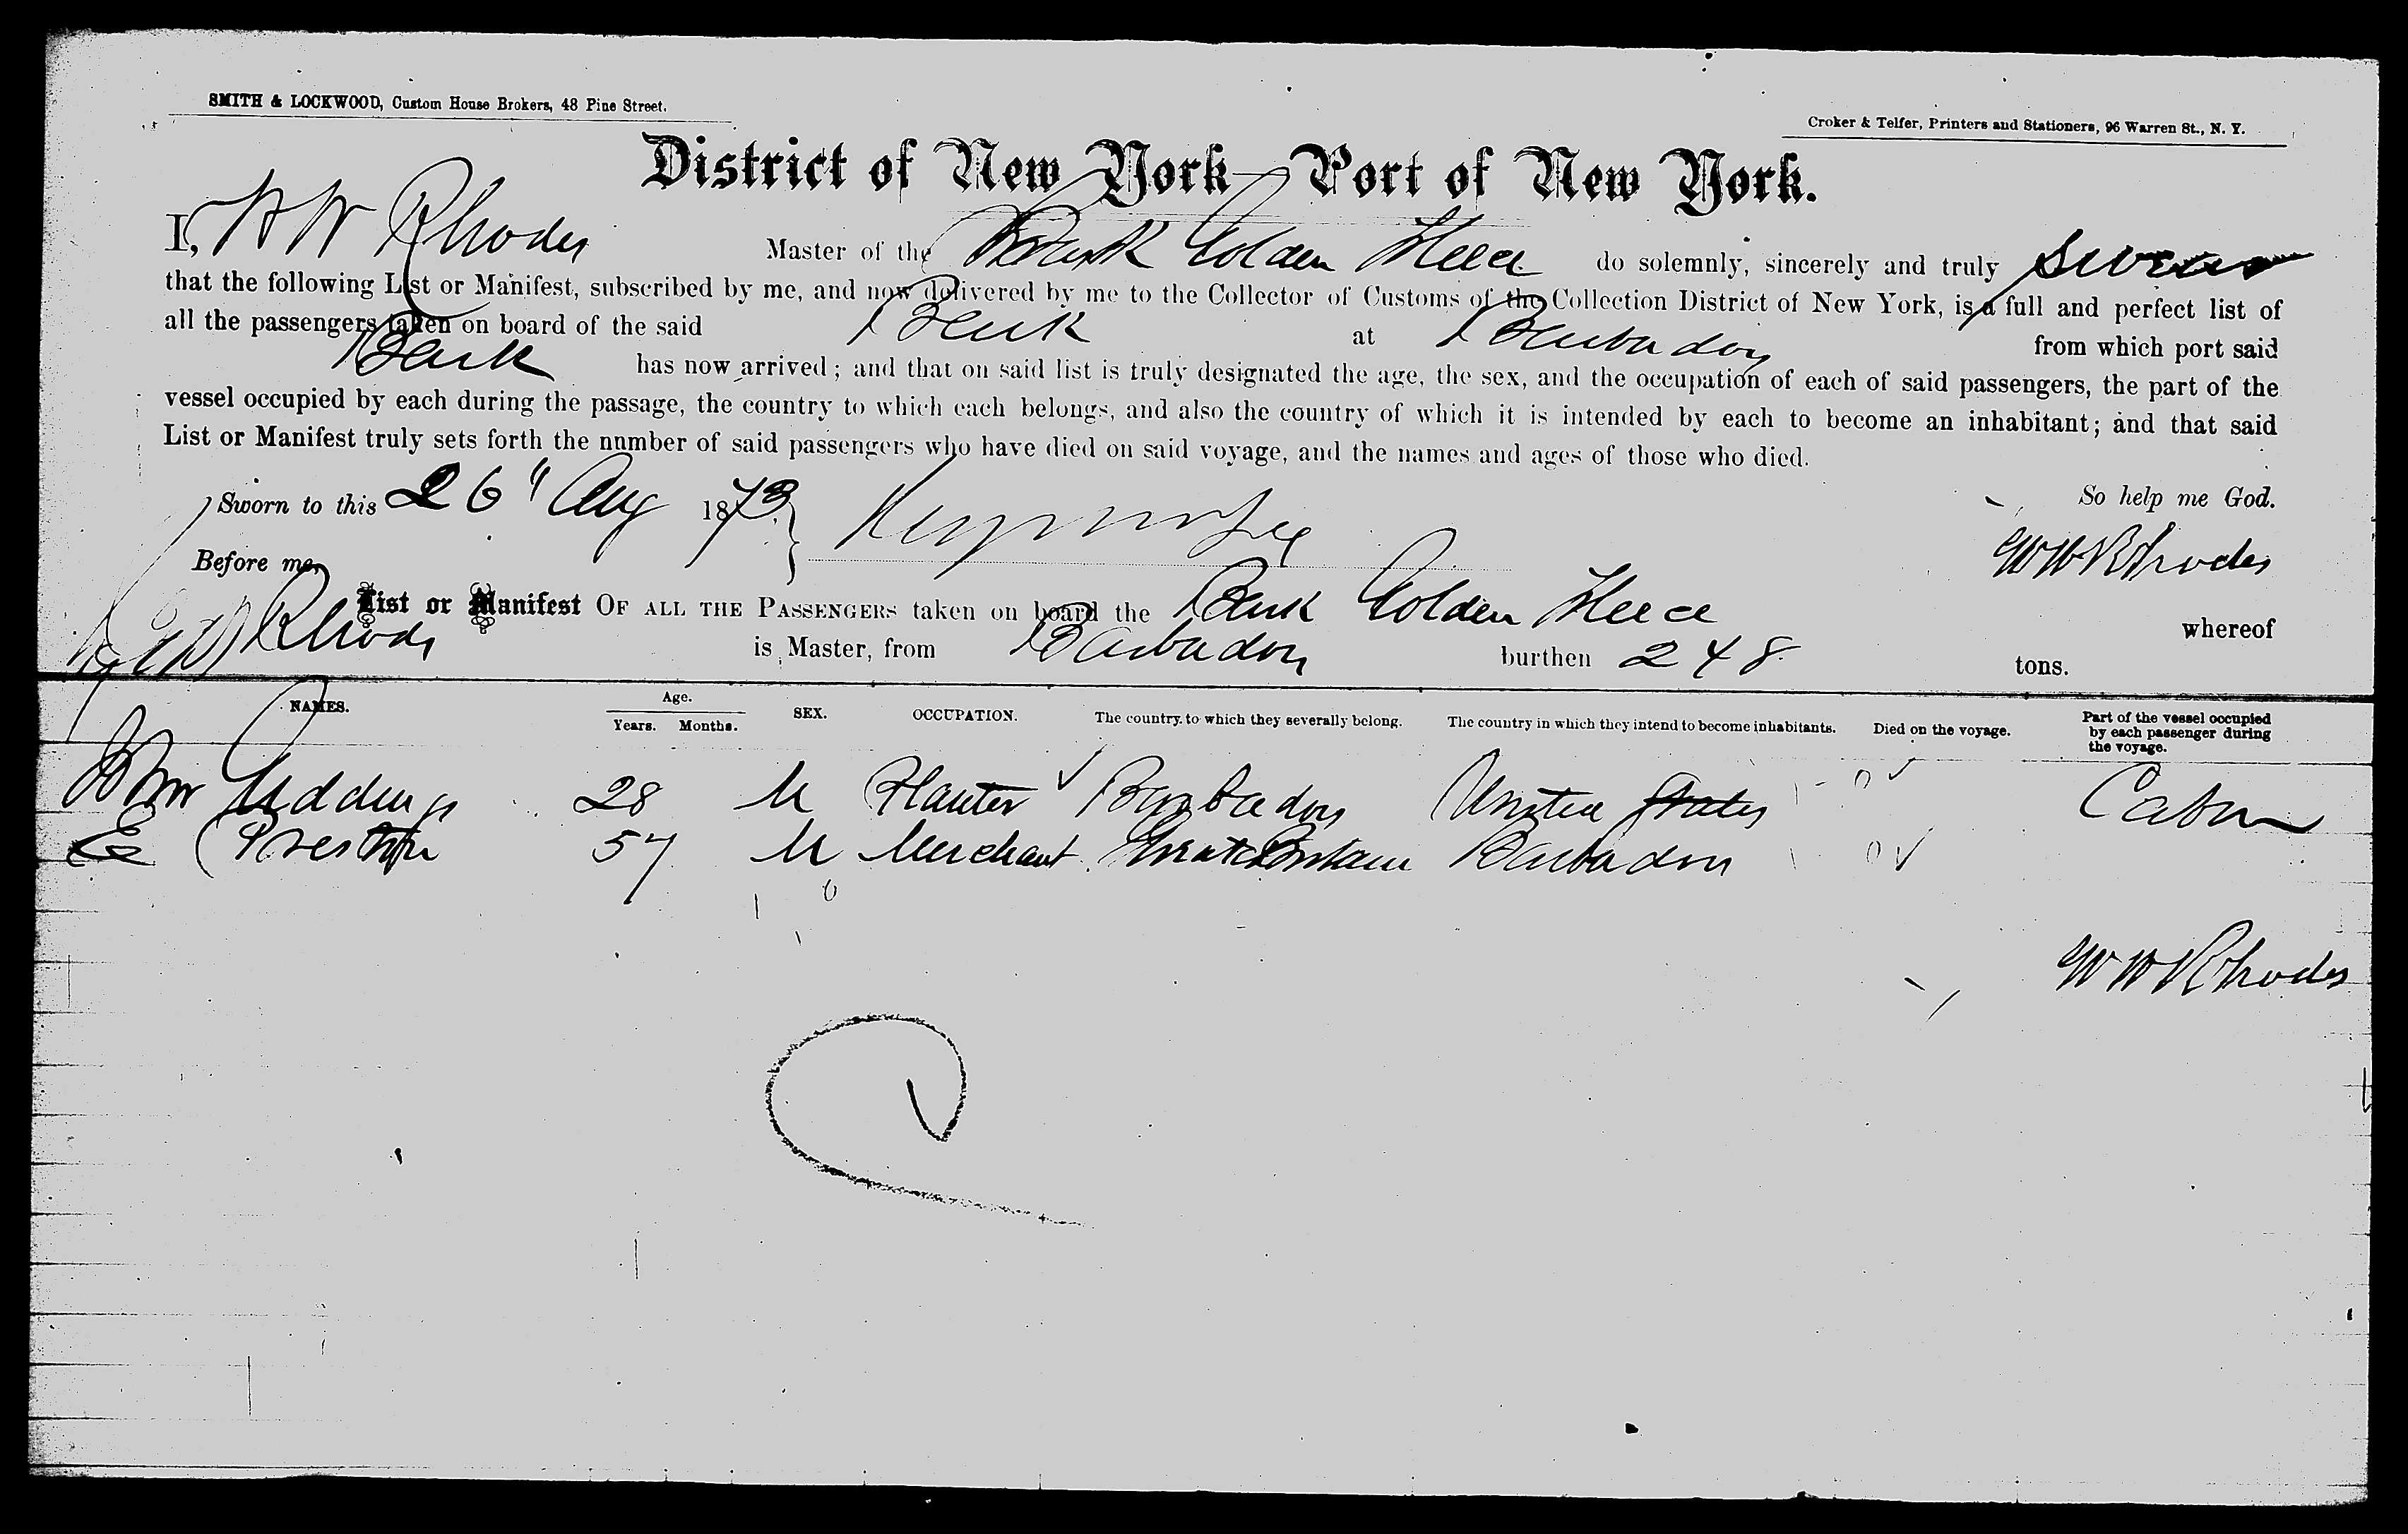 SMITH & LOCKWOOD, Custom House Brokers, 48 Pine Street.
Croker & Telfer, Printers and Stationers, 96 Warren St., N. Y.
District of New York—Port of New York.
I, W W Rhodes Master of the Bark Golden Fleece do solemnly, sincerely and truly swear
that the following List or Manifest, subscribed by me, and now delivered by me to the Collector of Customs of the Collection District of New York, is a full and perfect list of
all the passengers taken on board of the said Bark at Barbados from which port said
Bark has now arrived; and that on said list is truly designated the age, the sex, and the occupation of each of said passengers, the part of the
vessel occupied by each during the passage, the country to which each belongs, and also the country of which it is intended by each to become an inhabitant; and that said
List or Manifest truly sets forth the number of said passengers who have died on said voyage, and the names and ages of those who died.
Sworn to this 26" Aug 1873 So help me God.
Before me, W W Rhodes
List or Manifest OF ALL THE PASSENGERS taken on board the Bark Golden Fleece whereof
Rhodes is Master, from Barbados burthen 248 tons.
NAMES. Age. Years. Months. SEX. OCCUPATION. The country to which they severally belong. The country in which they intend to become inhabitants. Died on the voyage. Part of the vessel occupied by each passenger during the voyage.
28 M Planter Barbados United States 0 Cabin
E Preston 57 M Merchant Great Britain Barbados 0
W W Rhodes